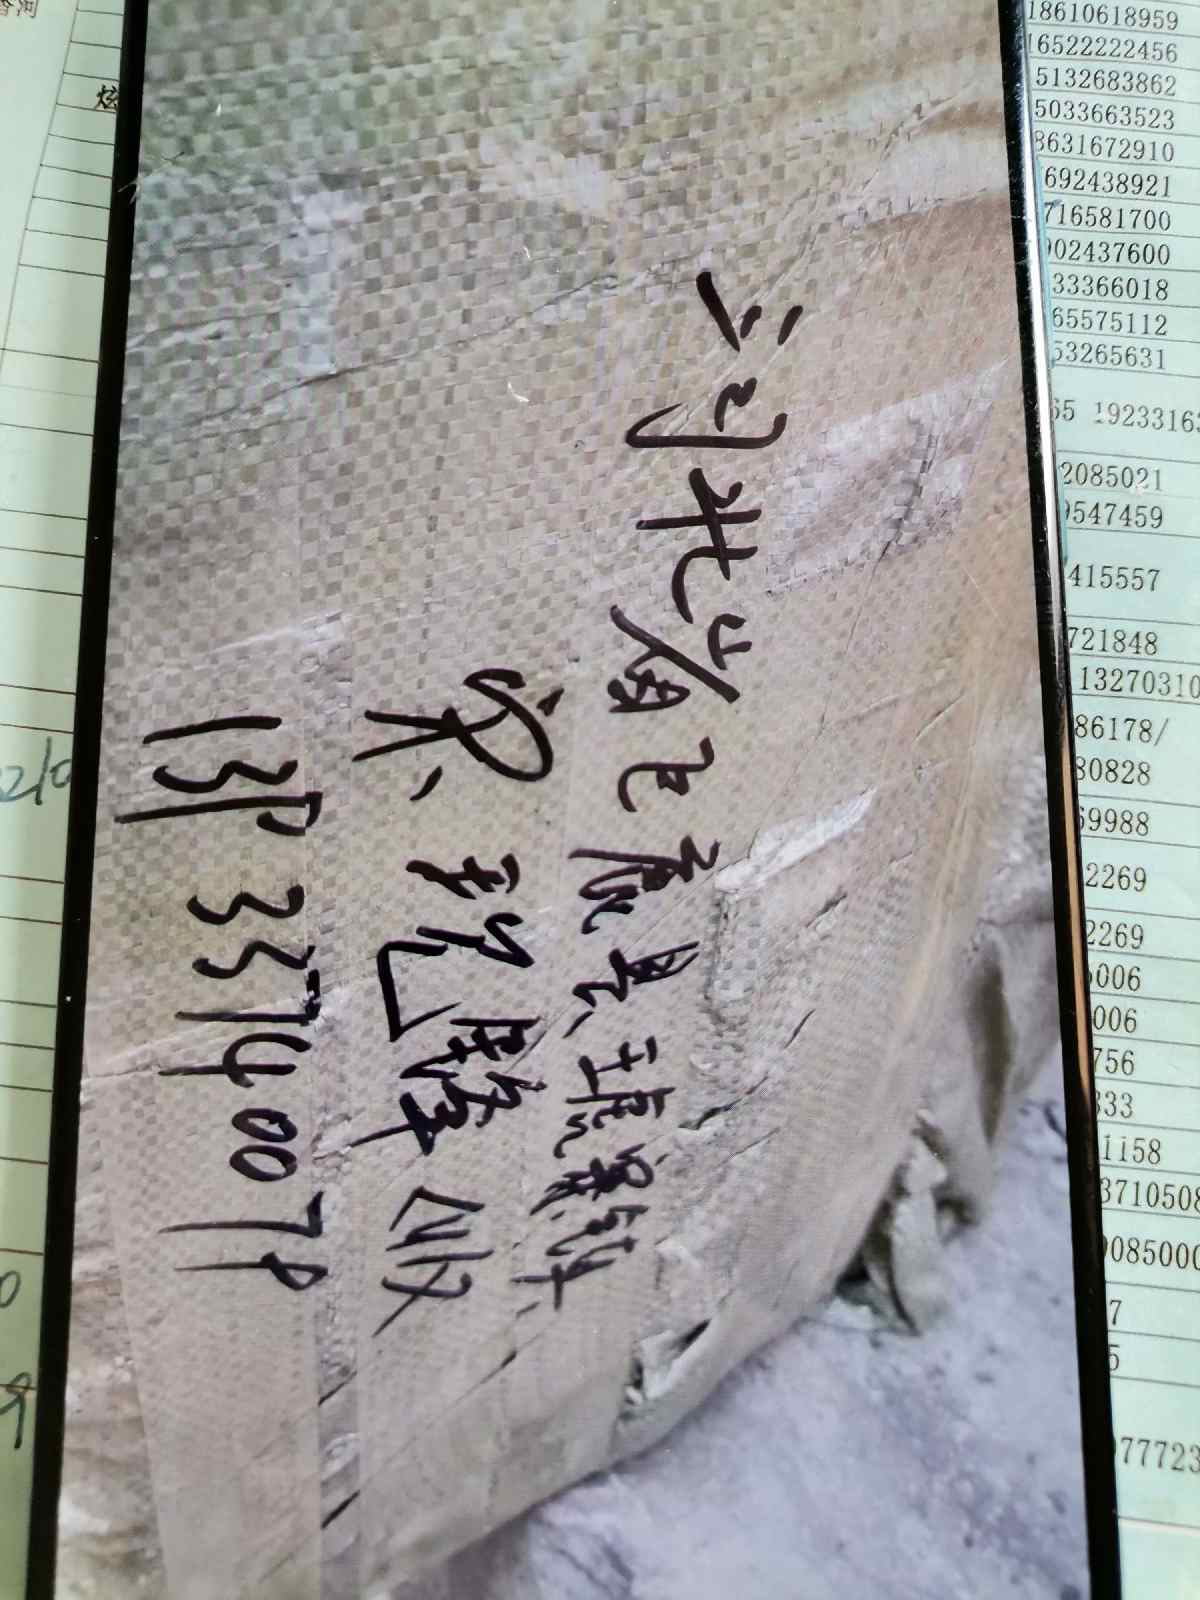 河北省巨鹿县王虎寨镇
收
13933740079
香河
炫
18610618959
16522222456
5132683862
5033663523
8631672910
692438921
716581700
902437600
33366018
65575112
53265631
65 1923316
2085021
9547459
415557
721848
13270310
86178/
80828
69988
2269
2269
6006
006
756
333
1158
3710508
0085000
7
5
077723